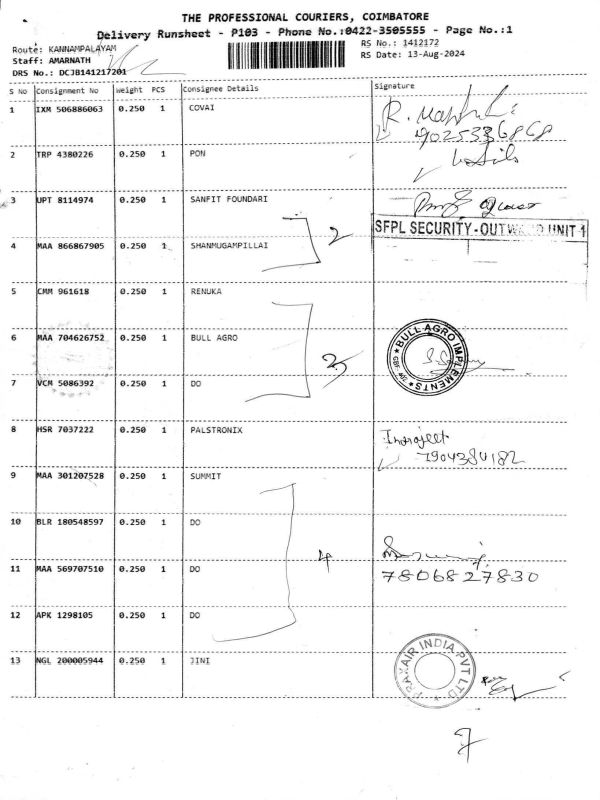 THE PROFESSIONAL COURIERS, COIMBATORE
Delivery Runsheet - P103 - Phone No.:0422-3505555 - Page No.:1
Route: KANNAMPALAYAM
RS No.: 1412172
Staff: AMARNATH
RS Date: 13-Aug-2024
DRS No.: DCJB141217201
S No Consignment No Weight PCS Consignee Details Signature
1 IXM 506886063 0.250 1 COVAI
9025336868
2 TRP 4380226 0.250 1 PON
3 UPT 8114974 0.250 1 SANFIT FOUNDARI
SFPL SECURITY-OUTWARD UNIT 1
2
4 MAA 866867905 0.250 1 SHANMUGAMPILLAI
5 CMM 961618 0.250 1 RENUKA
6 MAA 704626752 0.250 1 BULL AGRO
BULL AGRO IMPLEMENTS
3
7 VCM 5086392 0.250 1 DO
8 HSR 7037222 0.250 1 PALSTRONIX
7904384182
9 MAA 301207528 0.250 1 SUMMIT
10 BLR 180548597 0.250 1 DO
4
11 MAA 569707510 0.250 1 DO
7806827830
12 APK 1298105 0.250 1 DO
13 NGL 200005944 0.250 1 JINI
PRAXAIR INDIA PVT LTD